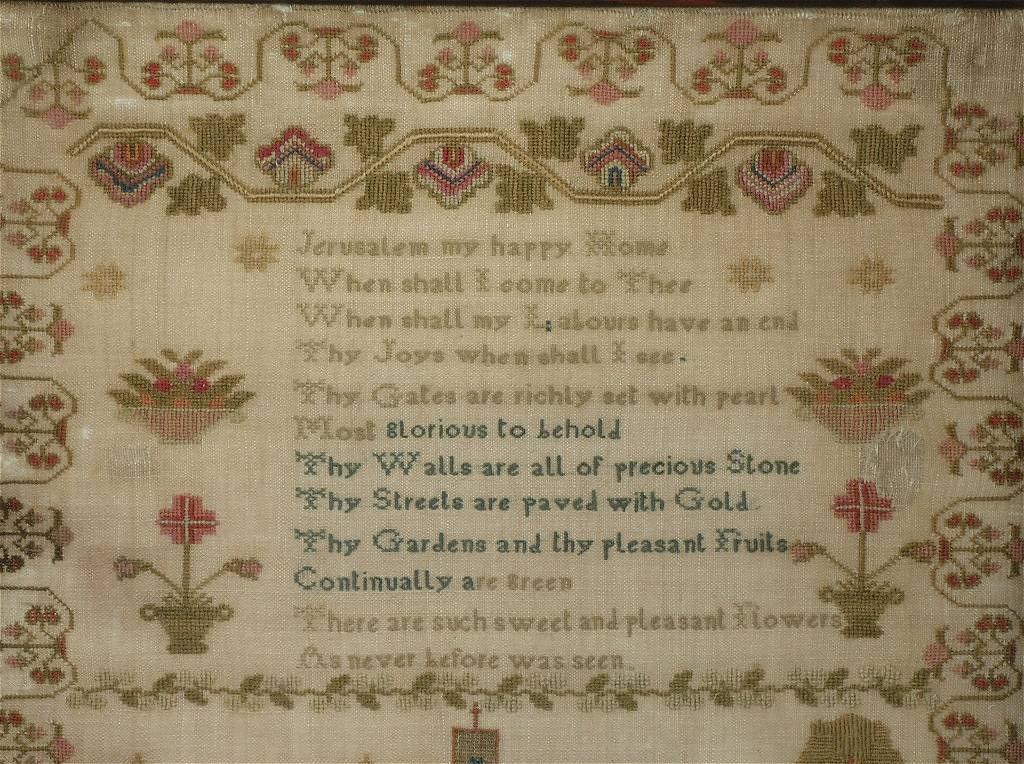 Jerusalem my happy Home
When shall I come to Thee
When shall my Labours have an end
Thy Joys when shall I see.
Thy Gates are richly set with pearl
Most glorious to behold
Thy Walls are all of precious Stone
Thy Streets are paved with Gold
Thy Gardens and thy pleasant Fruits
Continually are green
There are such sweet and pleasant Flowers
As never before was seen.